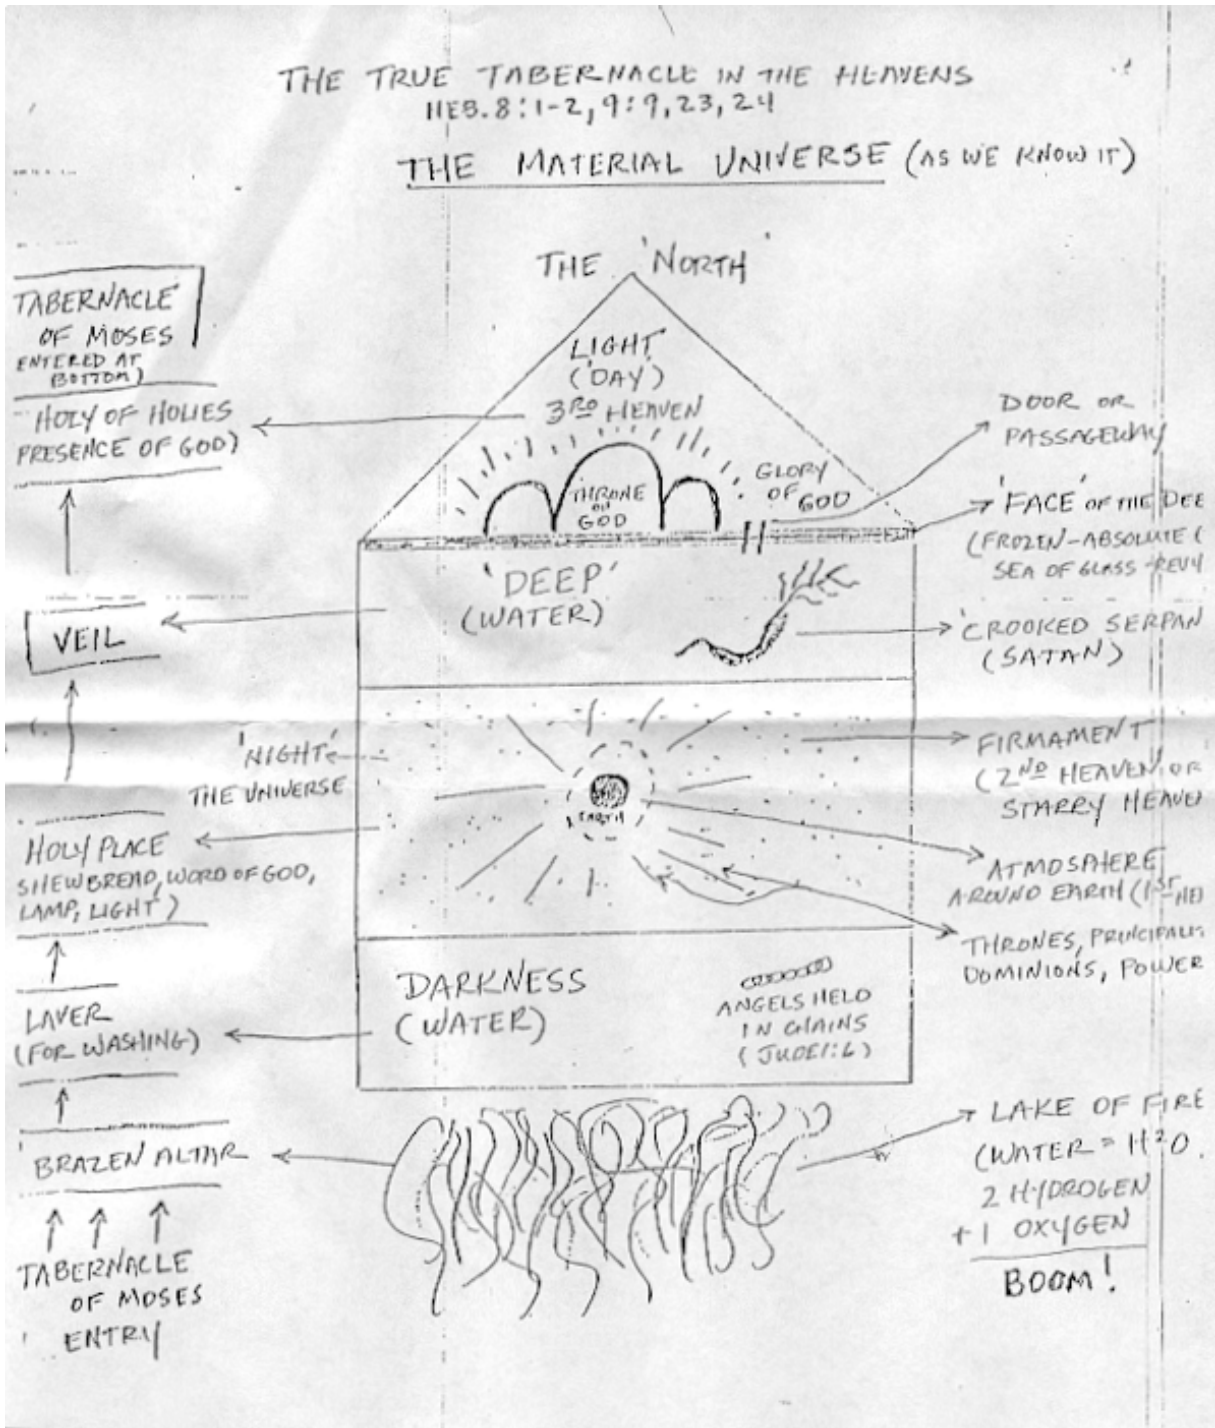 THE TRUE TABERNACLE IN THE HEAVENS
HEB. 8:1-2, 9:9, 23, 24
THE MATERIAL UNIVERSE (AS WE KNOW IT)
THE 'NORTH'
TABERNACLE
OF MOSES
ENTERED AT
BOTTOM)
HOLY OF HOLIES
PRESENCE OF GOD)
VEIL
'NIGHT'
THE UNIVERSE
HOLY PLACE
SHEWBREAD, WORD OF GOD,
LAMP, LIGHT)
LAVER
(FOR WASHING)
BRAZEN ALTAR
TABERNACLE
OF MOSES
ENTRY
LIGHT
('DAY')
3RD HEAVEN
THRONE
OF
GOD
GLORY
OF
GOD
'DEEP'
(WATER)
EARTH
DARKNESS
(WATER)
ANGELS HELD
IN CHAINS
(JUDE 1:6)
DOOR OR
PASSAGEWAY
'FACE' OF THE DEE
(FROZEN-ABSOLUTE (
SEA OF GLASS-REV4
'CROOKED SERPAN
(SATAN)
FIRMAMENT
(2ND HEAVEN OR
STARRY HEAVE
ATMOSPHERE
AROUND EARTH (1ST HE
THRONES, PRINCIPALI
DOMINIONS, POWER
LAKE OF FIRE
(WATER = H2O.
2 HYDROGEN
+1 OXYGEN
BOOM!